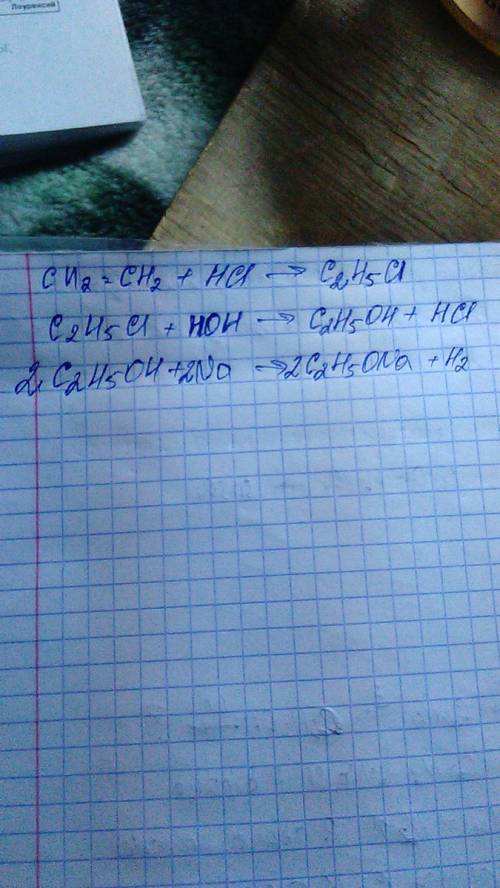 Лоуренсий
CH2=CH2 + HCl → C2H5Cl
C2H5Cl + HOH → C2H5OH + HCl
2C2H5OH+2Na → 2C2H5ONa + H2